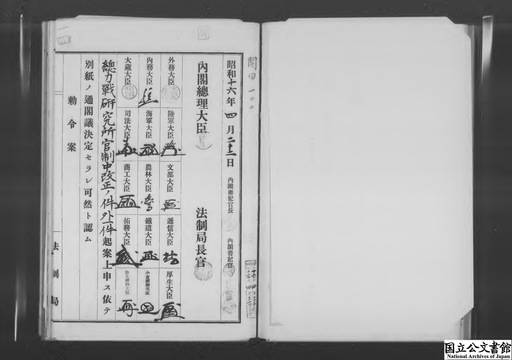 昭和十六年四月二十二日
内閣書記官長
内閣書記官
内閣總理大臣
法制局長官
外務大臣
陸軍大臣
文部大臣
遞信大臣
厚生大臣
内務大臣
海軍大臣
農林大臣
鐵道大臣
大蔵大臣
司法大臣
商工大臣
拓務大臣
總力戰研究所官制中改正ノ件外一件起案上申ス依テ
別紙ノ通閣議決定セラレ可然ト認ム
勅令案
法制局
国立公文書館
National Archives of Japan